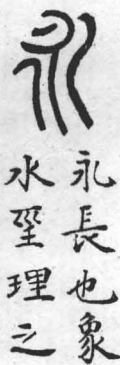 永
永長也象
水巠理之